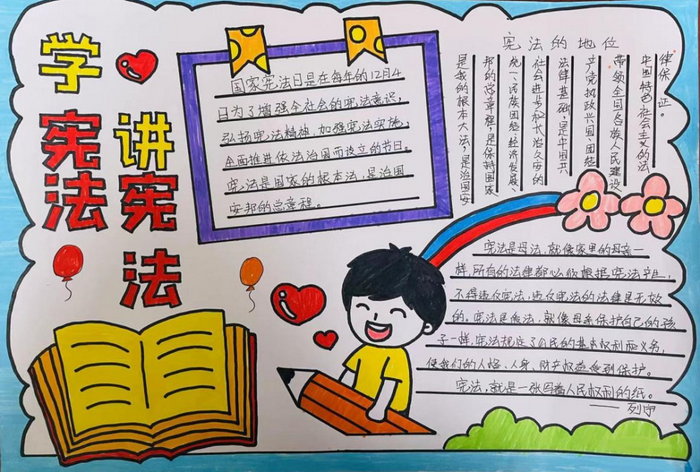 学宪法
讲宪法
国家宪法日是在每年的12月4
日为了增强全社会的宪法意识，
弘扬宪法精神，加强宪法实施，
全面推进依法治国而设立的节日。
宪法是国家的根本法，是治国
安邦的总章程。
宪法的地位
是我的根本大法，是治国安
邦的总章程，是保持国家
统一、民族团结、经济发展、
社会进步和长治久安的
法律基础，是中国共
产党执政兴国、团结
带领全国各族人民建设
中国特色社会主义的法
律保证。
宪法是母法，就像家里的母亲一
样，所有的法律都必须根据宪法产生，
不得违反宪法，违反宪法的法律是无效
的。宪法是母法，就像母亲保护自己的孩
子一样，宪法规定了公民的基本权利和义务，
使我们的人格、人身、财产权益受到保护。
宪法，就是一张写着人民权利的纸。
——列宁